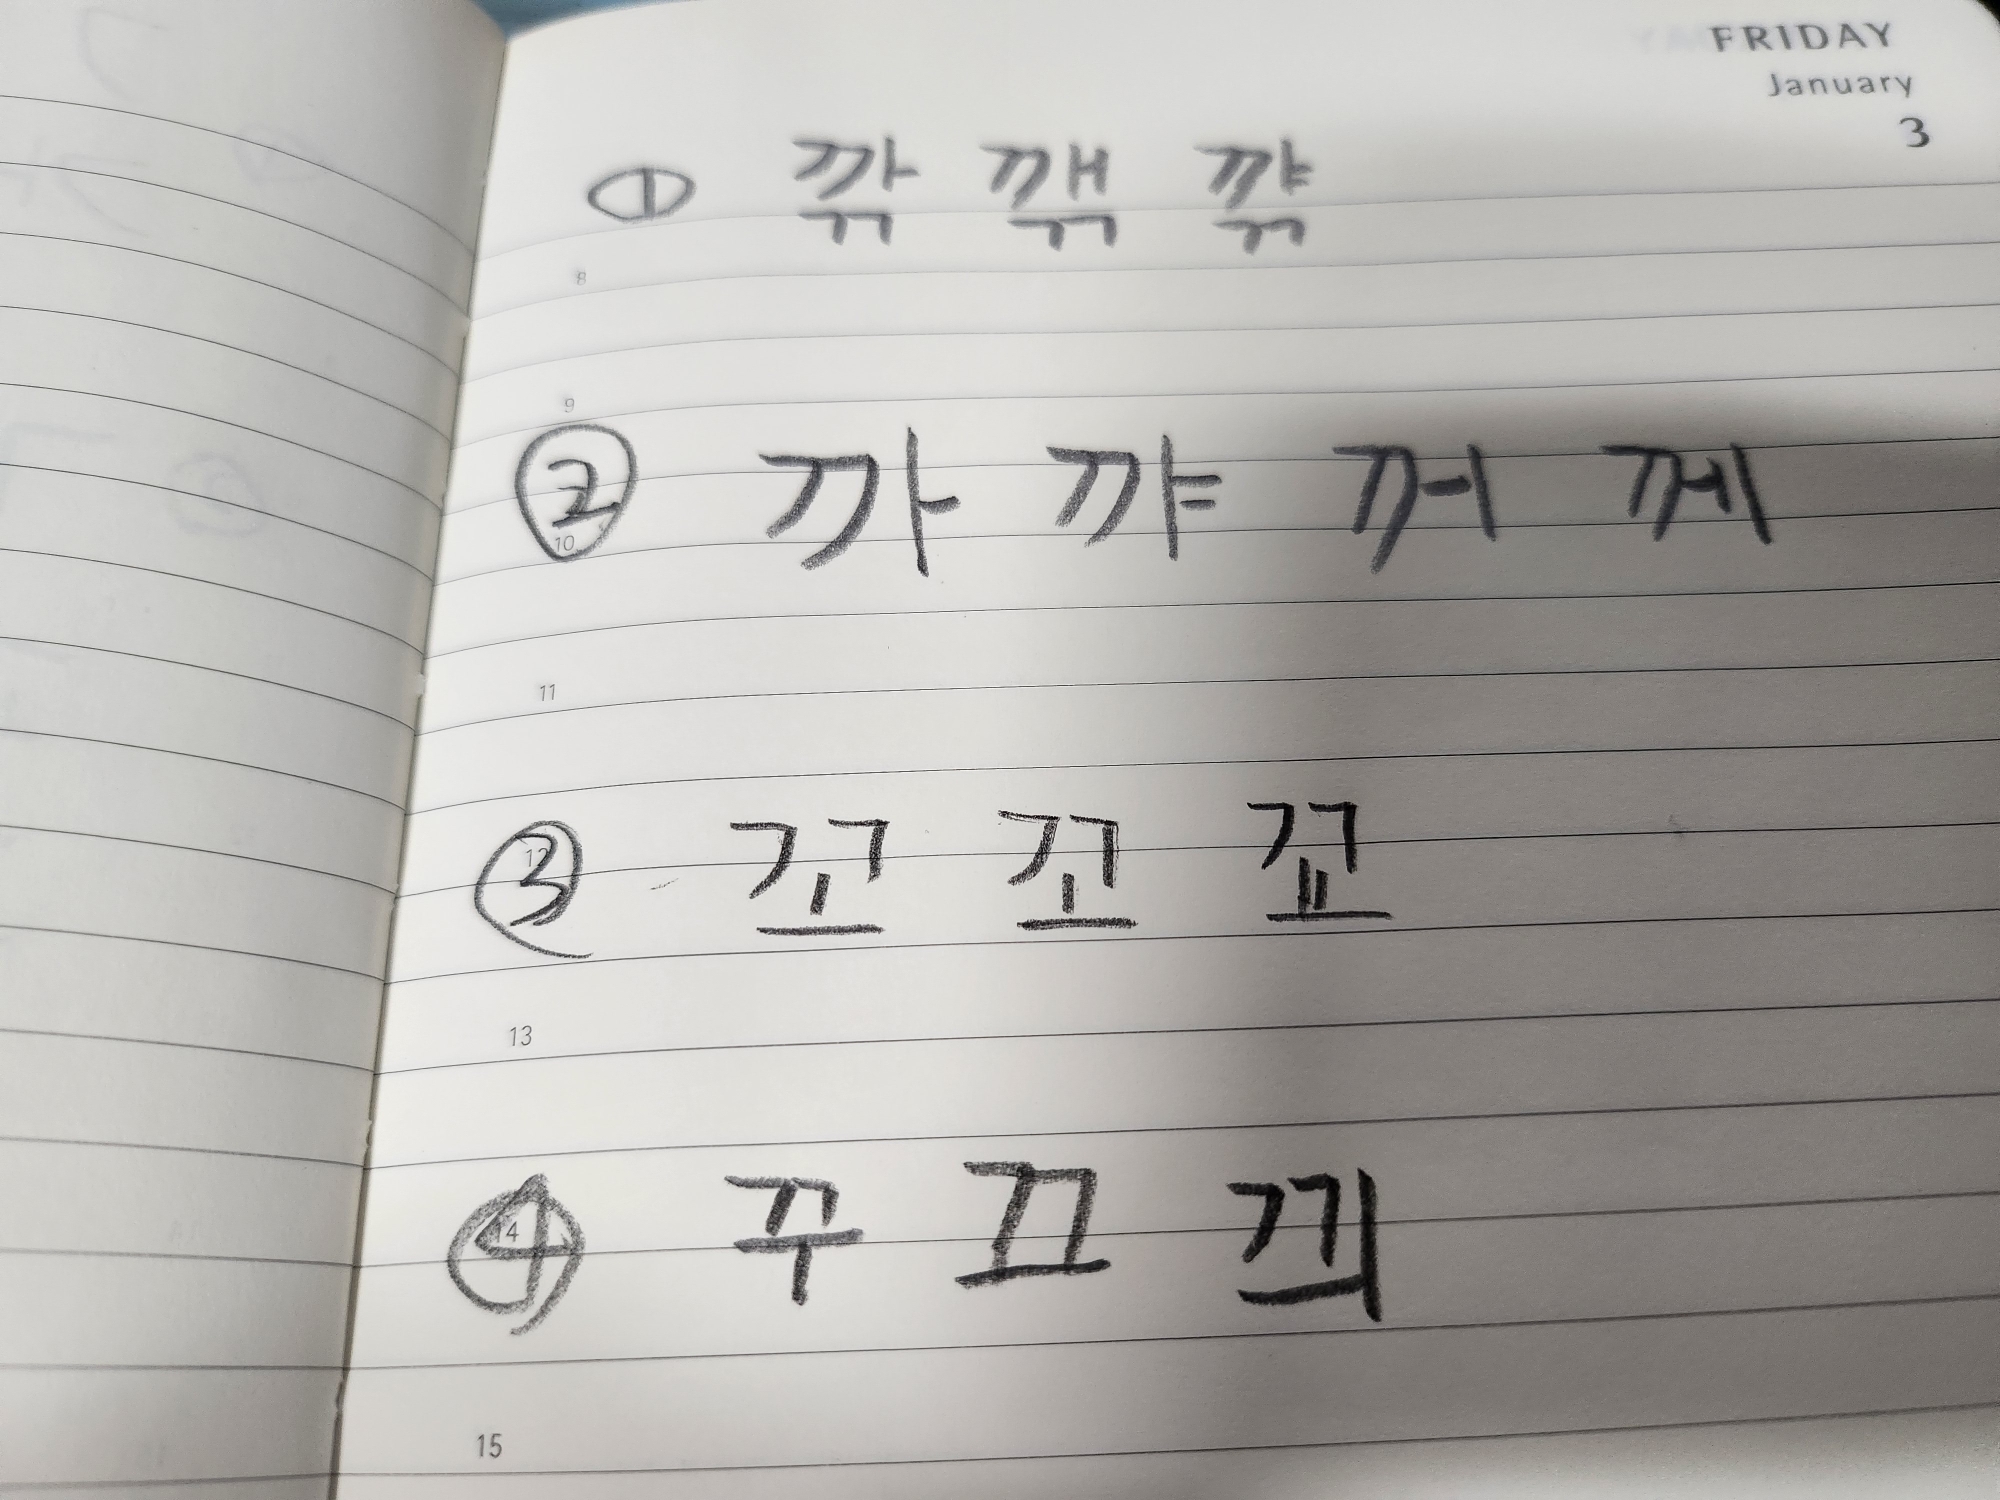 FRIDAY
January
3
① 깎 깪 꺆
8
9
② 까 꺄 꺼 께
10
11
③ 꼬 꼬 꾜
12
13
④ 꾸 끄 끠
14
15